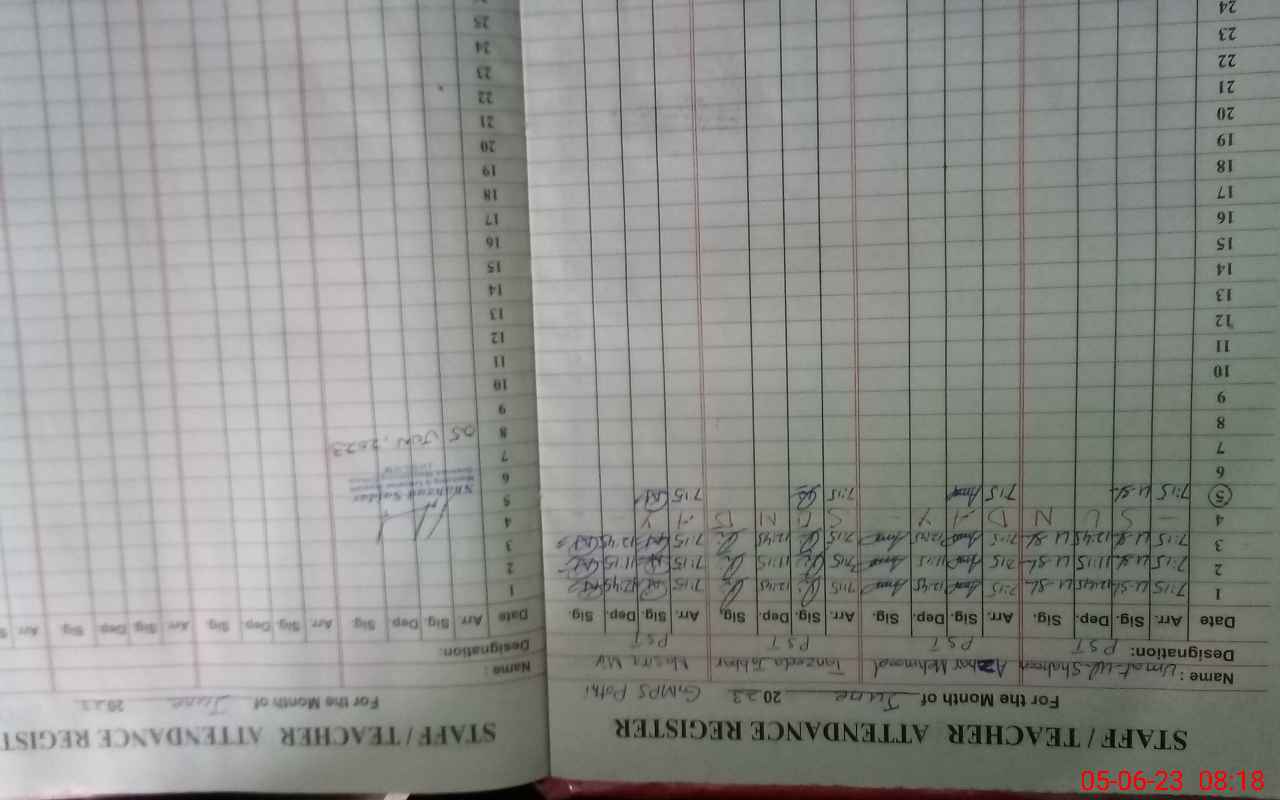 STAFF / TEACHER ATTENDANCE REGISTER
For the Month of June 2023 GMPS Pothi
Name : Umat-Ul-Shaheen Azhar Mehmood Tanzeela Jabbar
Designation: PST PST PST PST
Date Arr. Sig. Dep. Sig. Arr. Sig. Dep. Sig. Arr. Sig. Dep. Sig. Arr. Sig. Dep. Sig.
1 7:15 U-Sh 12:45 U-Sh 7:15 12:45 7:15 12:45 7:15 12:45
2 7:15 U-Sh 11:15 U-Sh 7:15 11:15 7:15 11:15 7:15 11:15
3 7:15 U-Sh 12:45 U-Sh 7:15 12:45 7:15 12:45 7:15 12:45
4 — S U N D A Y S U N D A Y
5 7:15 U-Sh 7:15 7:15 7:15
6
7
8
9
10
11
12
13
14
15
16
17
18
19
20
21
22
23
24
STAFF / TEACHER ATTENDANCE REGIST
For the Month of June 2023
Name :
Designation:
Date Arr. Sig. Dep. Sig. Arr. Sig. Dep. Sig. Arr. Sig. Dep. Sig. Arr. S
1
2
3
4
5
6
7
8 05 JUN, 2023
9
10
11
12
13
14
15
16
17
18
19
20
21
22
23
24
25
05-06-23 08:18